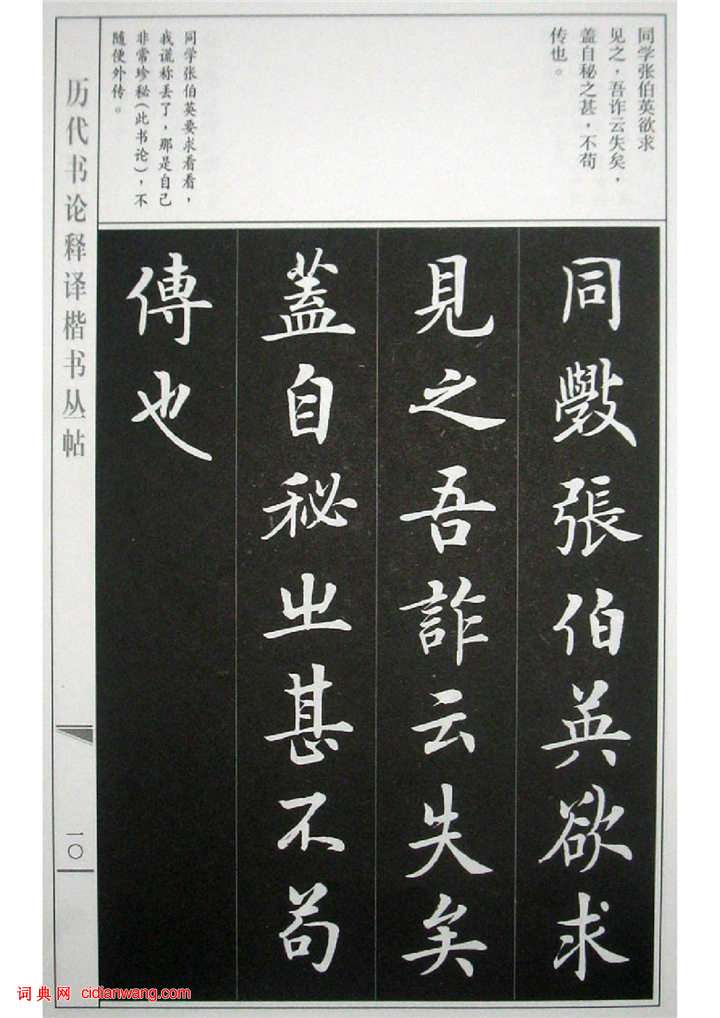 同学张伯英欲求
见之，吾诈云失矣，
盖自秘之甚，不苟
传也。
同学张伯英要求看看，
我谎称丢了，那是自己
非常珍秘（此书论），不
随便外传。
同斅張伯英欲求
見之吾詐云失矣
蓋自秘之甚不苟
傳也
历代书论释译楷书丛帖
一〇
词典网 cidianwang.com